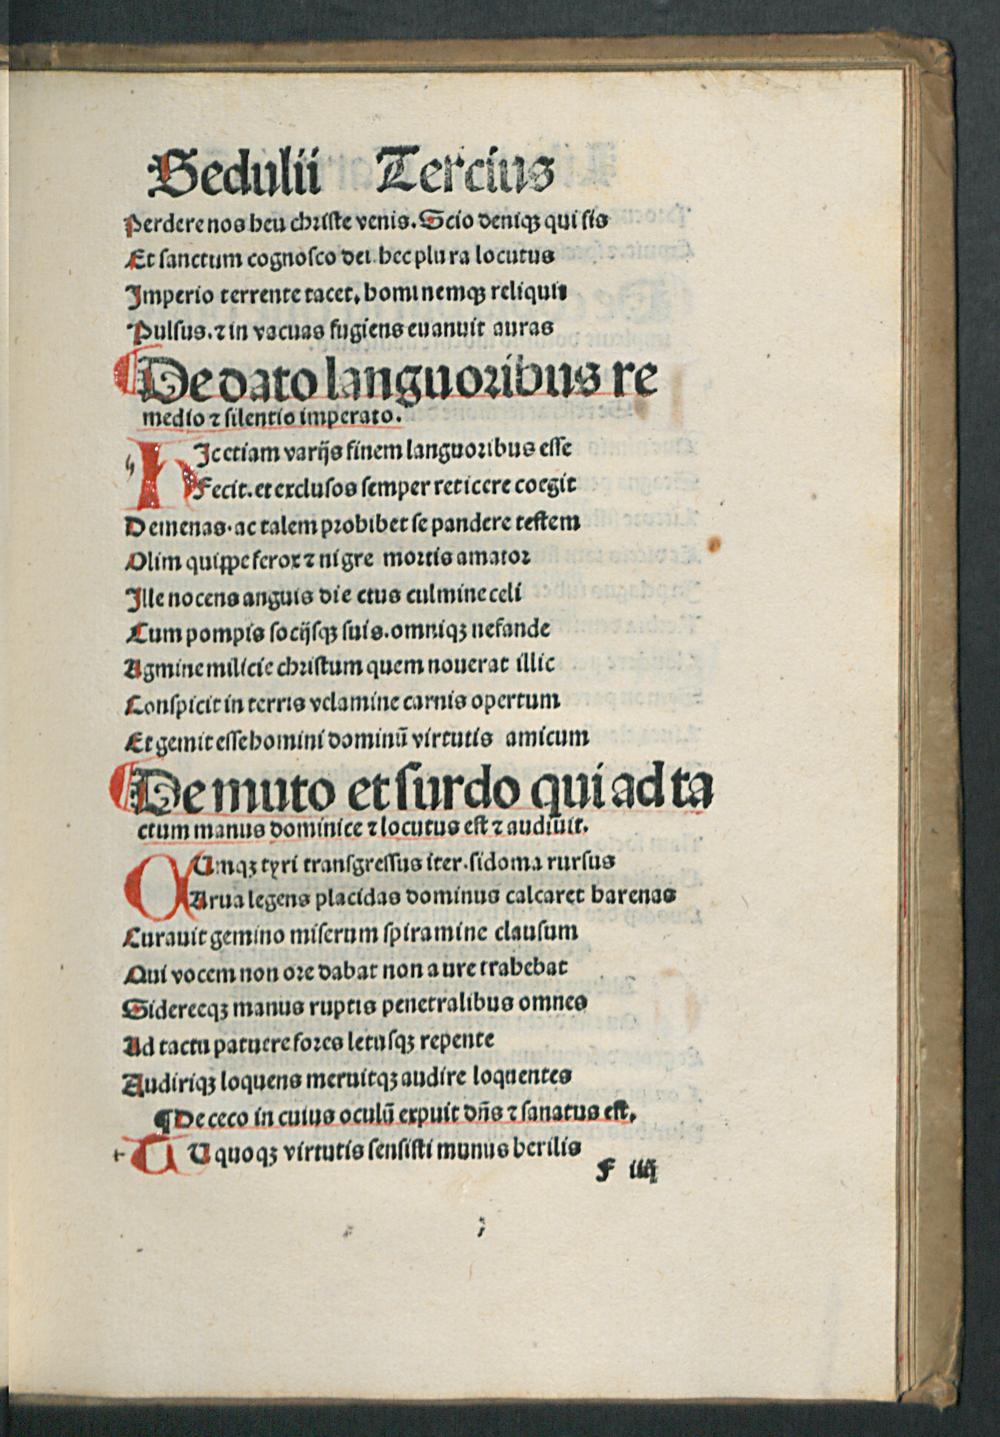 Sedulii Tercius
Perdere nos heu christe venis. Scio deniqꝫ qui sis
Et sanctum cognosco dei hec plura locutus
Imperio terrente tacet, hominemqꝫ reliquit
Pulsus. ⁊ in vacuas fugiens euanuit auras
De dato languoribus re
medio ⁊ silentio imperato.
h Ic etiam varijs finem languoribus esse
Fecit. et exclusos semper reticere coegit
Demenas. ac talem prohibet se pandere testem
Olim quippe ferox ⁊ nigre mortis amator
Ille nocens anguis die ctus culmine celi
Cum pompis socijsqꝫ suis. omniqꝫ nefande
Agmine milicie christum quem nouerat illic
Conspicit in terris velamine carnis opertum
Et gemit esse homini dominū virtutis amicum
De muto et surdo qui ad ta
ctum manus dominice ⁊ locutus est ⁊ audiuit.
C Umqꝫ tyri transgressus iter. sidoma rursus
Arua legens placidas dominus calcaret harenas
Curauit gemino miserum spiramine clausum
Qui vocem non ore dabat non aure trahebat
Sidereeqꝫ manus ruptis penetralibus omnes
Ad tactu patuere fores letusqꝫ repente
Audiriqꝫ loquens meruitqꝫ audire loquentes
¶De ceco in cuius oculū expuit dn̄s ⁊ sanatus est,
T U quoqꝫ virtutis sensisti munus herilis
F iiij